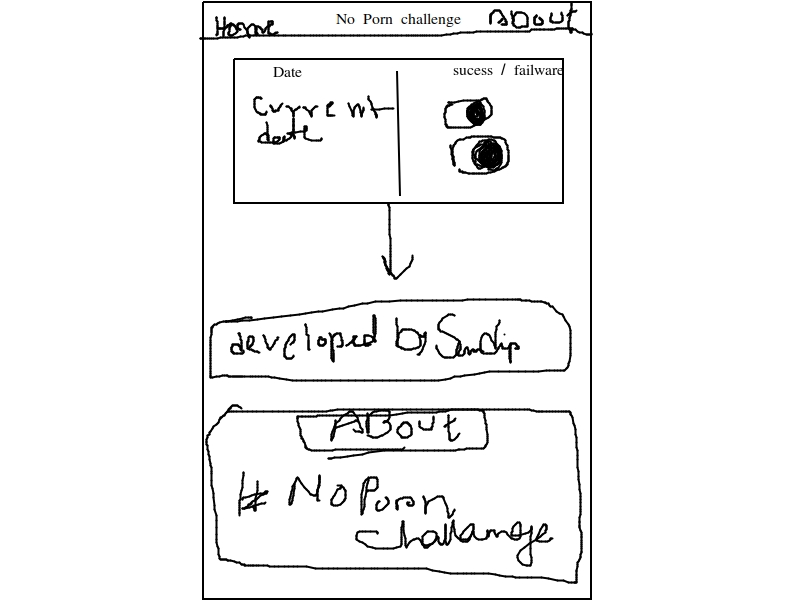 Home No Porn challenge About
Date sucess / failware
current
date
developed by Sandip
ABout
# No Porn
challange